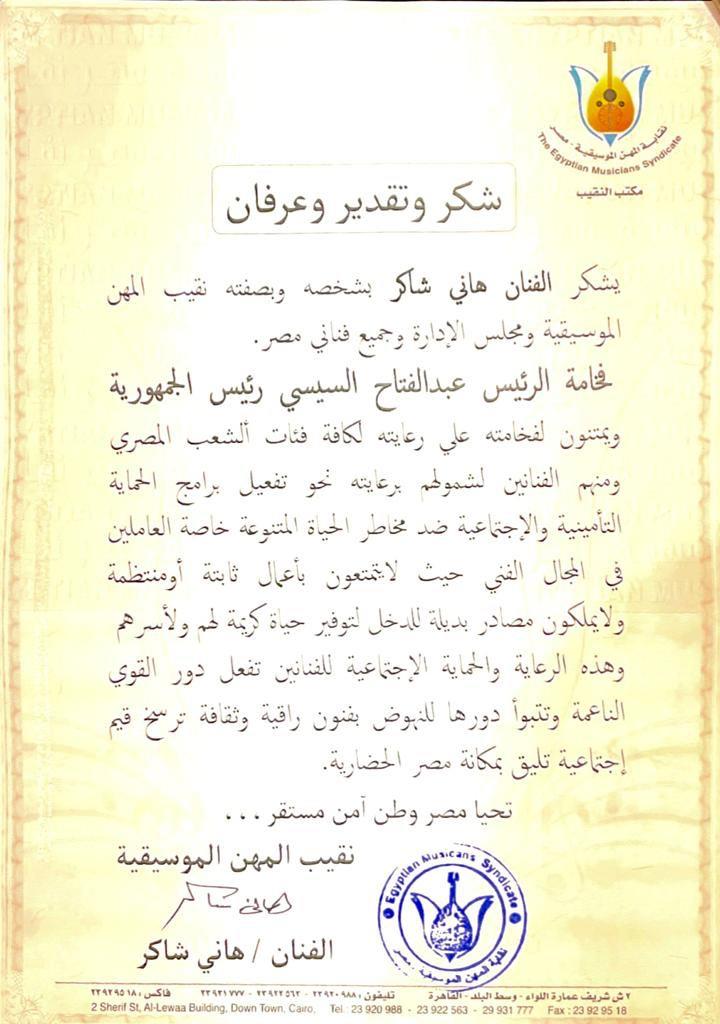 نقابة المهن الموسيقية - مصر
The Egyptian Musicians Syndicate
مكتب النقيب
شكر وتقدير وعرفان
يشكر الفنان هاني شاكر بشخصه وبصفته نقيب المهن
الموسيقية ومجلس الإدارة وجميع فناني مصر.
فخامة الرئيس عبدالفتاح السيسي رئيس الجمهورية
ويمتنون لفخامته علي رعايته لكافة فئات ألشعب المصري
ومنهم الفنانين لشمولهم برعايته نحو تفعيل برامج الحماية
التأمينية والإجتماعية ضد مخاطر الحياة المتنوعة خاصة العاملين
في المجال الفني حيث لايتمتعون بأعمال ثابتة أومنتظمة
ولايملكون مصادر بديلة للدخل لتوفير حياة كريمة لهم ولأسرهم
وهذه الرعاية والحماية الإجتماعية للفنانين تفعل دور القوي
الناعمة وتتبوأ دورها للنهوض بفنون راقية وثقافة ترسخ قيم
إجتماعية تليق بمكانة مصر الحضارية.
تحيا مصر وطن آمن مستقر ...
نقيب المهن الموسيقية
هاني شاكر
الفنان / هاني شاكر
Egyptian Musicans Syndicate
نقابة المهن الموسيقية - مصر
٢ ش شريف عمارة اللواء - وسط البلد - القاهرة تليفون : ٢٣٩٢٠٩٨٨ - ٢٣٩٢٢٥٦٣ - ٢٣٩٣١٧٧٧ فاكس : ٢٣٩٢٩٥١٨
2 Sherif St, Al-Lewaa Building, Down Town, Cairo, Tel : 23 920 988 - 23 922 563 - 29 931 777 Fax : 23 92 95 18